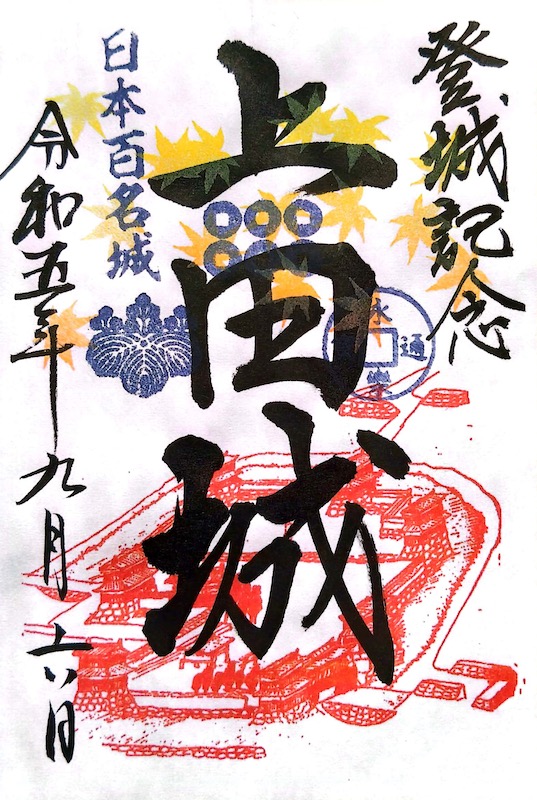 登城記念
上田城
永樂通
日本百名城
令和五年九月十六日